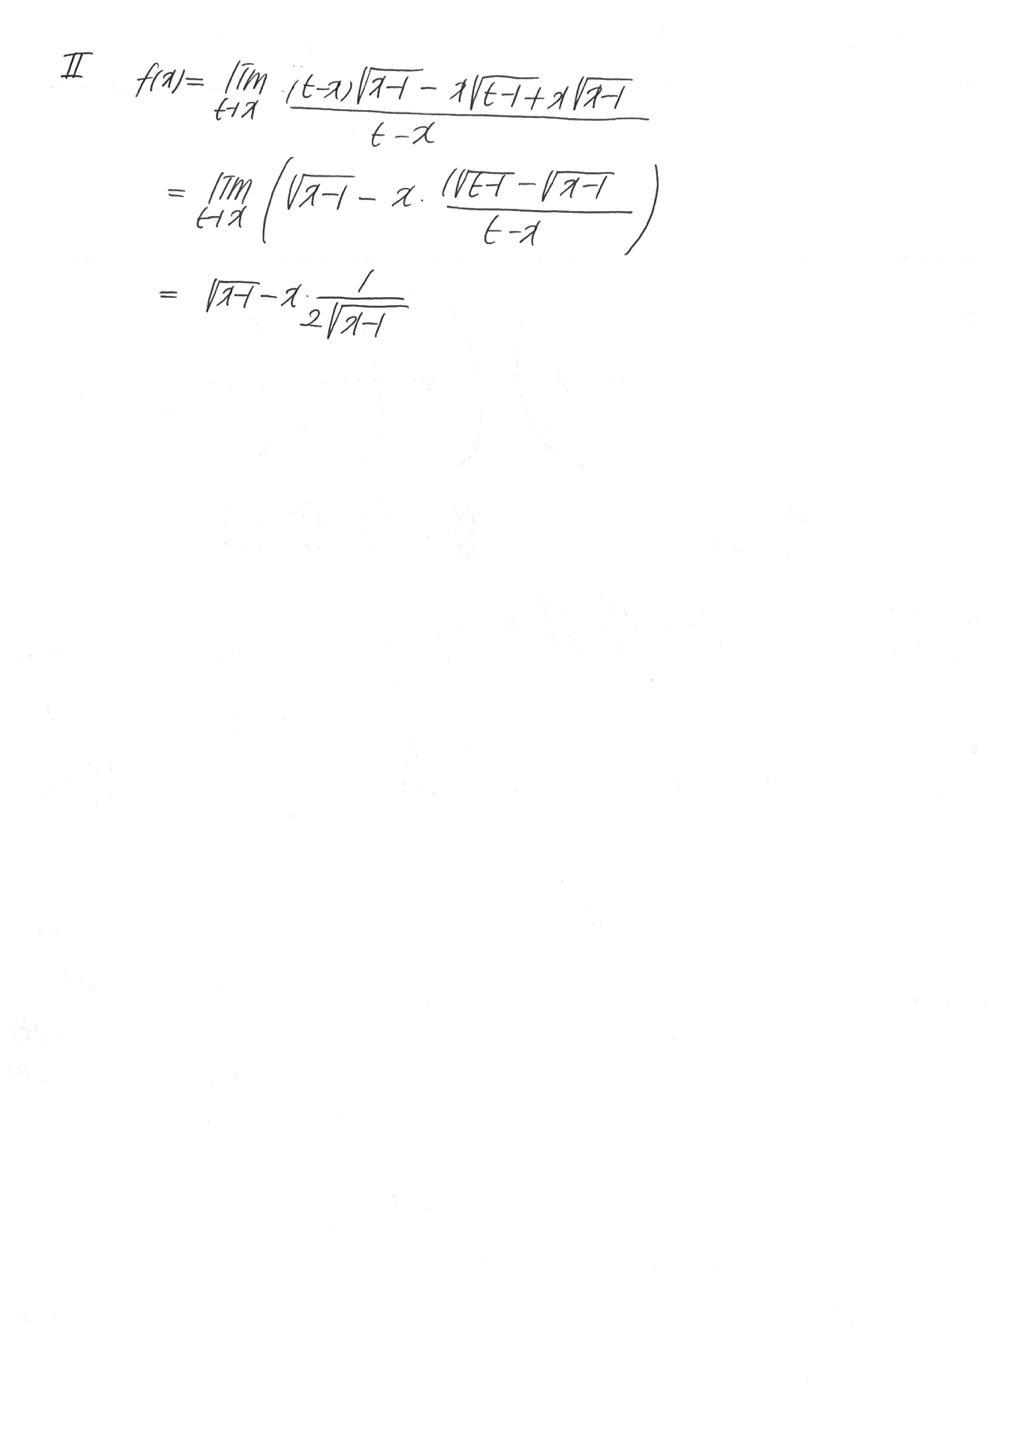 II f(x) = lim_{t→x} ((t-x)√(x-1) - x√(t-1) + x√(x-1)) / (t-x)
= lim_{t→x} (√(x-1) - x · (√(t-1) - √(x-1)) / (t-x))
= √(x-1) - x · 1 / (2√(x-1))